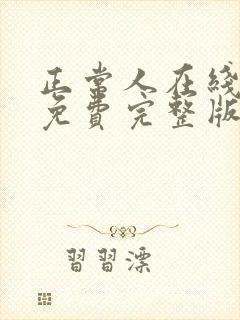 正常人在綫
免費完整版
習習漂